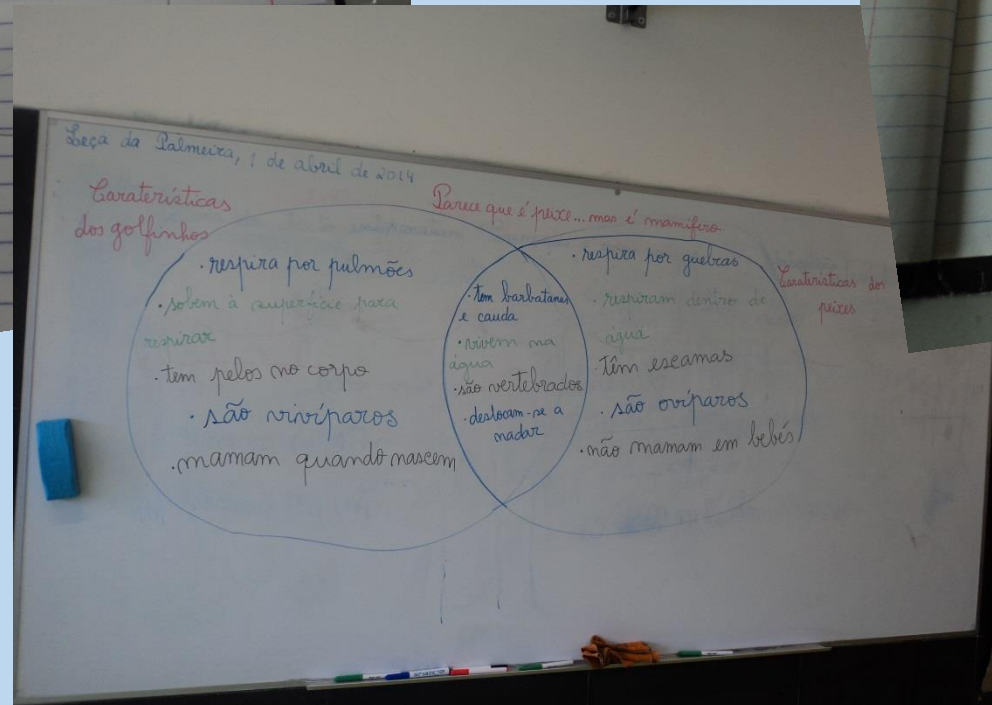 Leça da Palmeira, 1 de abril de 2014
Caraterísticas
dos golfinhos
Parece que é peixe... mas é mamífero
Caraterísticas dos
peixes
. respira por pulmões
. sobem à superfície para
respirar
. tem pelos no corpo
. são vivíparos
. mamam quando nascem
. tem barbatanas
e cauda
. vivem na
água
. são vertebrados
. deslocam-se a
nadar
. respira por guelras
. respiram dentro de
água
. Têm escamas
. são ovíparos
. não mamam em bebés